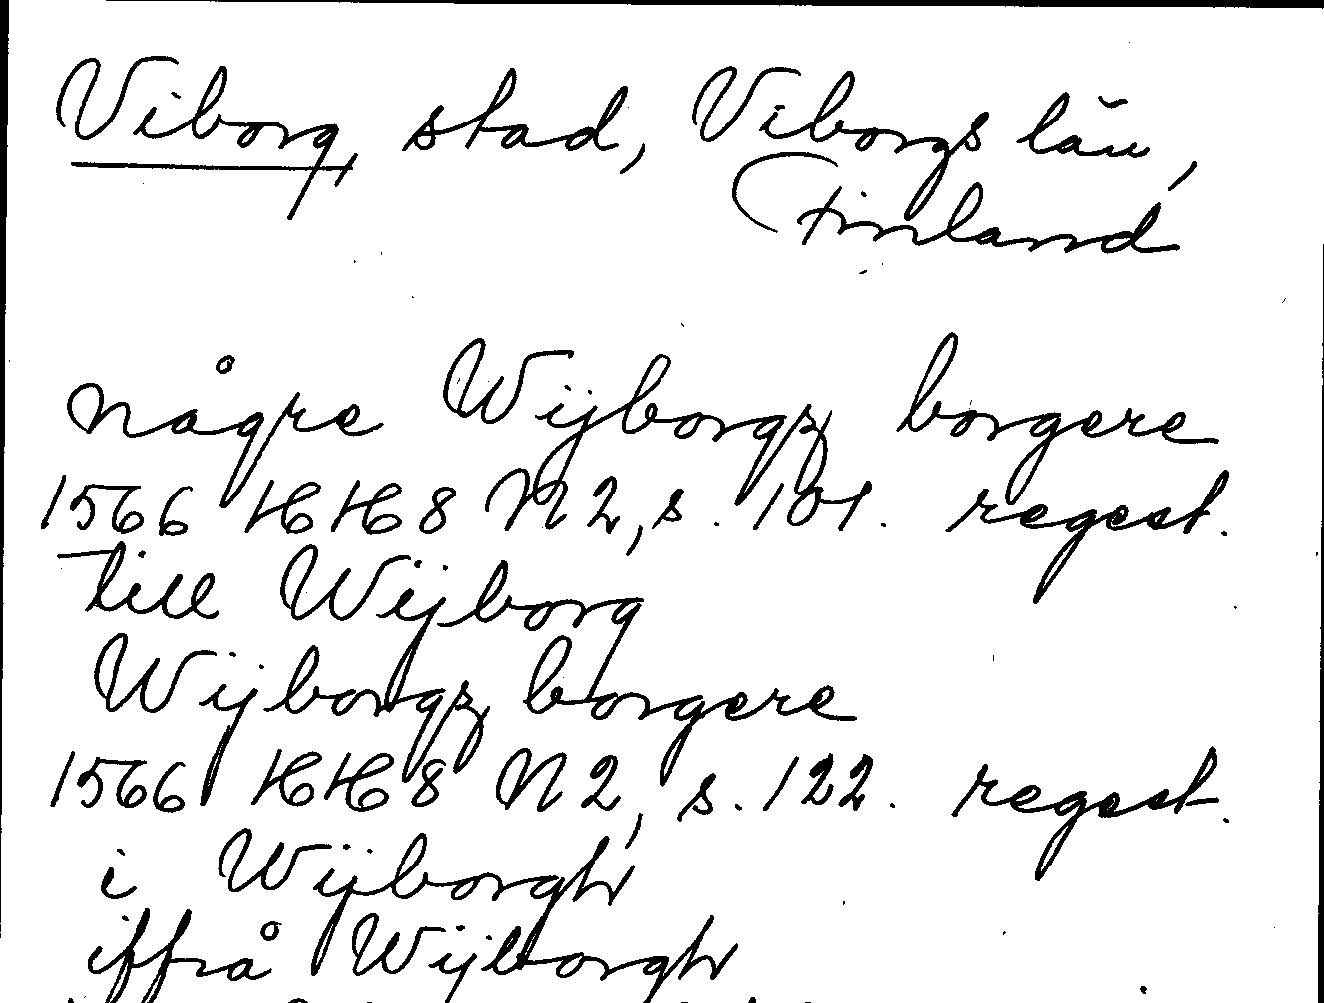 Viborg, stad, Viborgs län,
Finland
någre Wijborgz borgere
1566 HH8 N2, s. 101. regest.
till Wijborg
Wijborgz borgere
1566 HH8 N2, s. 122. regest.
i Wijborgh
iffrå Wijborgh